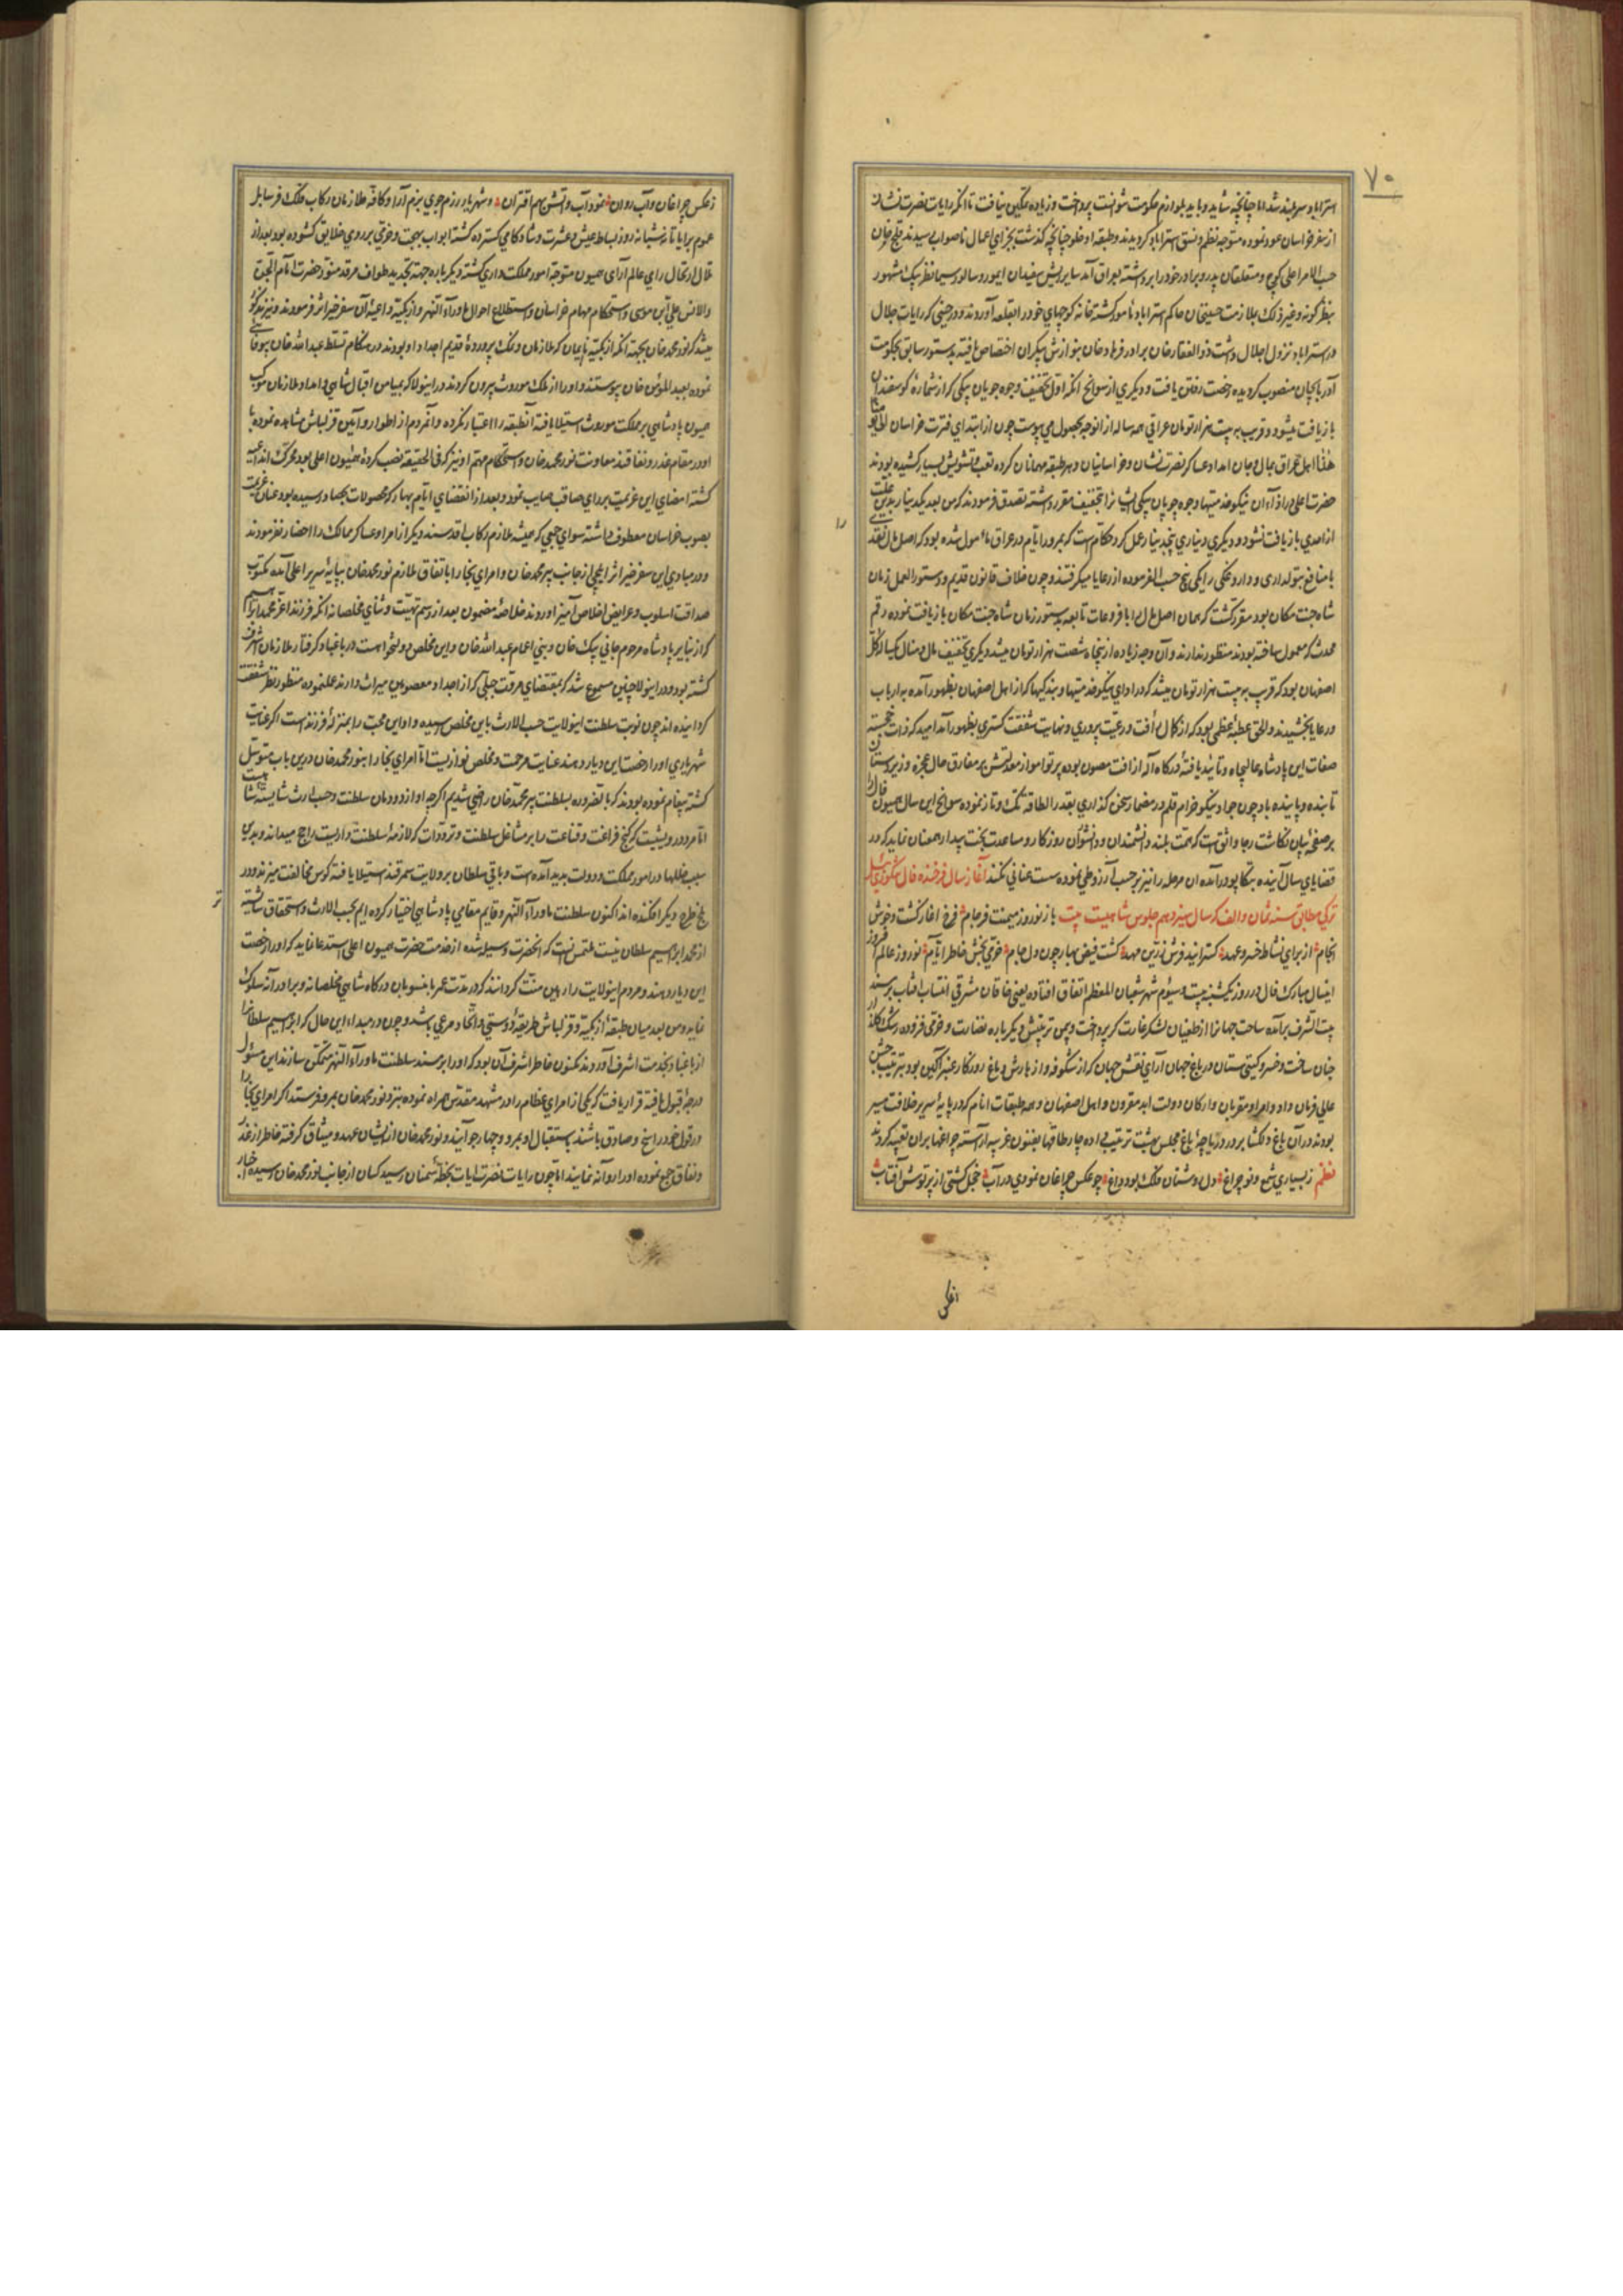 ۷۰
استراباد سربلند شد اما چنانچه شاید و باید بلوازم حکومت نتوانست پرداخت و زیاده تمکین نیافت تا آنکه رایات نصرت نشان
از سفر خراسان عود نموده متوجه نظم و نسق استراباد گردیدند و طبقه اوخلو چنانچه گذشت بجزای اعمال ناصواب رسیدند قلیج خان
حسب الامر اعلی کوچ و متعلقان پدر و برادر خود را برداشته بعراق آمد سایر ریش سفیدان ایمور و سالور سیما نظر بیک مشهور
بنظر گونه و غیر ذلک بملازمت حسینخان حاکم استراباد مأمور گشته خانه کوچهای خود را بقلعه آوردند و در حینی که رایات جلال
در استراباد نزول اجلال داشت ذوالفقار خان برادر فرهاد خان بنوازش بیکران اختصاص یافته بدستور سابق بحکومت
آذربایجان منصوب گردیده رخصت رفتن یافت و دیگری از سوانح آنکه اول تخفیف وجوه چوپان بیکی که از شماره گوسفندان
بازیافت میشود و قریب به بیست هزار تومان عراقی همه ساله از آن وجه بحصول می پیوست چون از ابتدای فترت خراسان
هذا اهل عراق بمال و جان امداد عساکر نصرت نشان و خراسانیان و بهر طبقه مهمانان کرده تعب و تشویش بسیار کشیده بودند
حضرت اعلی در ازاء آن نیکو خدمتیها وجوه چوپان بیکی ایشانرا تخفیف مقرر داشته تصدق فرمودند که من بعد یکدینار بدین علت
از احدی بازیافت نشود و دیگری دیناری پنجدینار عمل کرد حکام است که بمرور ایام در عراق مأمول شده بود که اصل مال نقد
با منافع بتولداری و داروغگی را یکی پنج حسب الفرموده از رعایا میگرفتند و چون خلاف قانون قدیم و دستور العمل زمان
شاه جنت مکان بود مقرر گشت که همان اصل مال را با فروعات تابعه بدستور زمان شاه جنت مکان بازیافت نموده رقم
محدث که معمول ساخته بودند منظور ندارند و آن وجه زیاده از پنجاه شصت هزار تومان میشد و دیگری تخفیف مال و منال یکساله کل
اصفهان بود که قریب به بیست هزار تومان میشد که در ازای نیکو خدمتیها و بندگیها که از اهل اصفهان بظهور آمده به ارباب
و رعایا بخشیدند و الحق عطیه عظمی بود که از کمال رأفت و رعیت پروری و نهایت شفقت گستری بظهور آمد امید که ذات خجسته
صفات این پادشاه عالیجاه و تأیید یافته درگاه آله از آفت مصون بوده پرتو امواز معدلتش بر مفارق حال عجزه و زیردستان
تابنده و پاینده باد چون جواد نیکو خرام قلم در مضمار سخن گذاری بقدر الطاقه تک و تاز نموده سوانح این سال همیون فال را
بر صفحه بیان نگاشت رجا واثق است که همت بلند دانشمندان و دانشوران روزگار و مساعدت بخت بیدار همعنان نماید که در
قضایای سال آینده بتکاپو درآمده آن مرحله را نیز بر حسب آرزو طی نموده سست عنانی نکند آغاز سال فرخنده فال
ترکی مطابق سنه ثمان و الف که سال سیزدهم جلوس شاهیست بیت باز نوروز میمنت فرجام فرخ آغاز گشت و خوش
انجام از برای نشاط خسرو عهد گسترانید فرش زرین مهد گشت فیض بهار چون دل جام خرمی بخش خاطر ایام نوروز عالم
اینسال مبارک فال در روز یکشنبه بیست و سیوم شهر شعبان المعظم اتفاق افتاده یعنی خاقان مشرقی انتساب آفتاب بر مسند
بیت الشرف برآمده ساحت جهانرا از طغیان لشکر غارت گر پرداخت و چمن تربیتش دیگر باره نضارت و خرمی فزوده
جنان ساخت و خسرو گیتی ستان در باغ جهان آرای نقش جهان که از شکوفه و ازهارش دماغ روزگار عنبر آگین بود بترتیب جشن
عالی فرمان داد و امرا و مقربان و ارکان دولت ابد مقرون و اهل اصفهان و همه طبقات انام که در پایه سریر خلافت مسیر
بودند در آن باغ دلگشا بر دور دریاچه باغ مجلس بهشت ترتیب داده چار طاقها بفنون غریبه آراسته چراغها بران تعبیه کردند
نظم ز بسیاری شمع و نور چراغ دل روشنان فلک بود داغ چو عکس چراغان نمودی در آب خجل گشتی از پرتوش آفتاب
را
ز عکس چراغان و آب روان نمود آب و آتش بهم اقتران و شهریار رزم جوی بزم آرا و کافه ملازمان رکاب فلک فرسا بل
عموم برایا تا نه شبانه روز بساط عیش و عشرت و شادکامی گسترده گشته ابواب بهجت و خرمی بر روی خلایق گشوده بود بعد از
رای عالم آرای همیون متوجه امور مملکت داری گشته دیگر باره جهته تجدید طواف مرقد منور حضرت امام الجن
والانس علی ابن موسی و استحکام مهام خراسان و استطلاع احوال ماوراء النهر و ازبکیه داعیه آن سفر خیر اثر فرمودند و نیز
میشد که نور محمد خان بجهته آنکه ازبکیه نایمان که ملازمان و نمک پرورده قدیم اجداد او بودند در هنگام تسلط عبدالله خان بیوفایی
نموده بعبد المؤمن خان پیوستند و او را از ملک موروث بیرون کردند در اینولا که بمیامن اقبال شاهی و امداد ملازمان موکب
همیون پادشاهی بر مملکت موروث استیلا یافته آن طبقه را اعتبار نکرده و آن مردم از اطوار و آیین قزلباش مشاهده نموده با
او در مقام غدر و نفاقند معاونت نور محمد خان و استحکام مهم او نیز که فی الحقیقه نصب کرده همیون اعلی بود محرک این داعیه
گشته امضای این عزیمت بر رای صاقب صایب نمود و بعد از انقضای ایام بهار که محصولات بحصاد رسیده بود عنان عزیمت
بصوب خراسان معطوف داشته سوای جمعی که همیشه ملازم رکاب اقدسند دیگر از امرا و عساکر ممالک را احضار نفرمودند
و در مبادی این سفر خیر اثر ایلچی از جانب پیر محمد خان و امرای بخارا باتفاق ملازم نور محمد خان بپایه سریر اعلی آمده مکتوب
صداقت اسلوب و عرایض اخلاص آمیز آوردند خلاصه مضمون بعد از رسم تهنیت و ثنای مخلصانه آنکه فرزند اعز محمد ابراهیم
که از نبایر پادشاه مرحوم جانی بیک خان و بنی اعمام عبدالله خان و این مخلص دولتخواهست در باغباد گرفتار ملازمان اشرف
گشته بود و در اینولا چنین مسموع شد که بمقتضای مروت جبلی که از اجداد معصومین میراث دارند علم نموده منظور نظر شفقت
گردانیده اند چون نوبت سلطنت اینولایت حسب الارث باین مخلص رسیده و او این محبت را بمنزله فرزند است اگر عنایت
شهریاری او را رخصت این دیار دهند غایت مرحمت و مخلص نوازیست اما امرای بخارا بنور محمد خان درین باب متوسل
گشته پیغام نموده بودند که بالضروره بسلطنت پیر محمد خان راضی شدیم اگرچه او از دودمان سلطنت و حسب ارث شایسته
اما مرد درویشیست که گنج فراغت و قناعت را بر مشاغل سلطنت و ترددات که لازمه سلطنت و داریست راجح میداند و بدین
سبب خللها در امور مملکت و دولت پدید آمده است و باقی سلطان بر ولایت سمرقند استیلا یافته کوس مخالفت میزند و در
بلخ طرح دیگر افکنده اند اکنون سلطنت ماوراء النهر و قایم مقامی پادشاهی اختیار کرده ایم بحسب الارث و استحقاق شایسته
از محمد ابراهیم سلطان نیست ملتمس آنست که آنحضرت وسیله شده از خدمت حضرت همیون اعلی استدعا نماید که او را رخصت
این دیار دهند و مردم اینولایت را رهین منت گردانند که در مدت عمر با منسوبان درگاه شاهی مخلصانه و برادرانه سلوک
نمایند و من بعد میان طبقه ازبکیه و قزلباش طریقه دوستی و اتحاد مرعی باشد و چون در مبداء این حال که ابراهیم سلطان را
از باغباد بخدمت اشرف آوردند مکنون خاطر اشرف آن بود که او را بر مسند سلطنت ماوراء النهر متمکن سازند این مسئول
درجه قبول یافته قرار یافت که یکی از امرای عظام را در مشهد مقدس همراه نموده بنزد نور محمد خان بمرو فرستند اگر امرای بخارا
در قول خود راسخ و صادق باشند باستقبال او بمرو و چهارجو آیند و نور محمد خان از ایشان عهد و میثاق گرفته خاطر از غدر
و نفاق جمع نموده او را روانه نمایند اما چون رایات نصرت آیات بخطه سمنان رسید کسان از جانب نور محمد خان رسیده اخبار